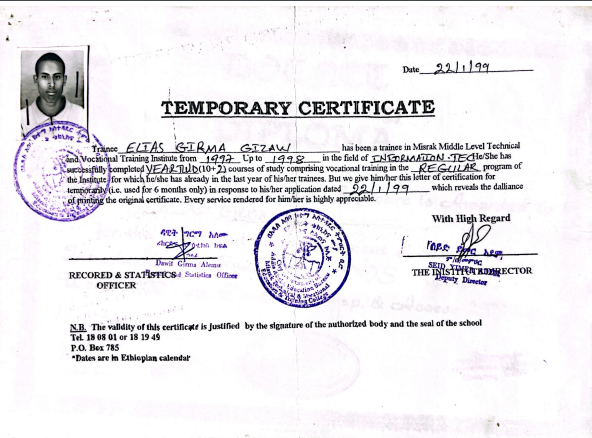 Date 22/1/99
TEMPORARY CERTIFICATE
Trainee ELIAS GIRMA GIZAW has been a trainee in Misrak Middle Level Technical
and Vocational Training Institute from 1997 Up to 1998 in the field of INFORMATION TECH He/She has
successfully completed YEARTWO (10+2) courses of study comprising vocational training in the REGULAR program of
the Institute for which he/she has already in the last year of his/her trainees. But we give him/her this letter of certification for
temporarily (i.e. used for 6 months only) in response to his/her application dated 22/1/99 which reveals the dalliance
of printing the original certificate. Every service rendered for him/her is highly appreciable.
With High Regard
ዳዊት ግርማ አለሙ
Dawit Girma Alemu
RECORED & STATISTICS
Statistics Officer
OFFICER
THE INISTITUTE DIRECTOR
Deputy Director
N.B. The validity of this certificate is justified by the signature of the authorized body and the seal of the school
Tel. 18 08 01 or 18 19 49
P.O. Box 785
*Dates are in Ethiopian calendar